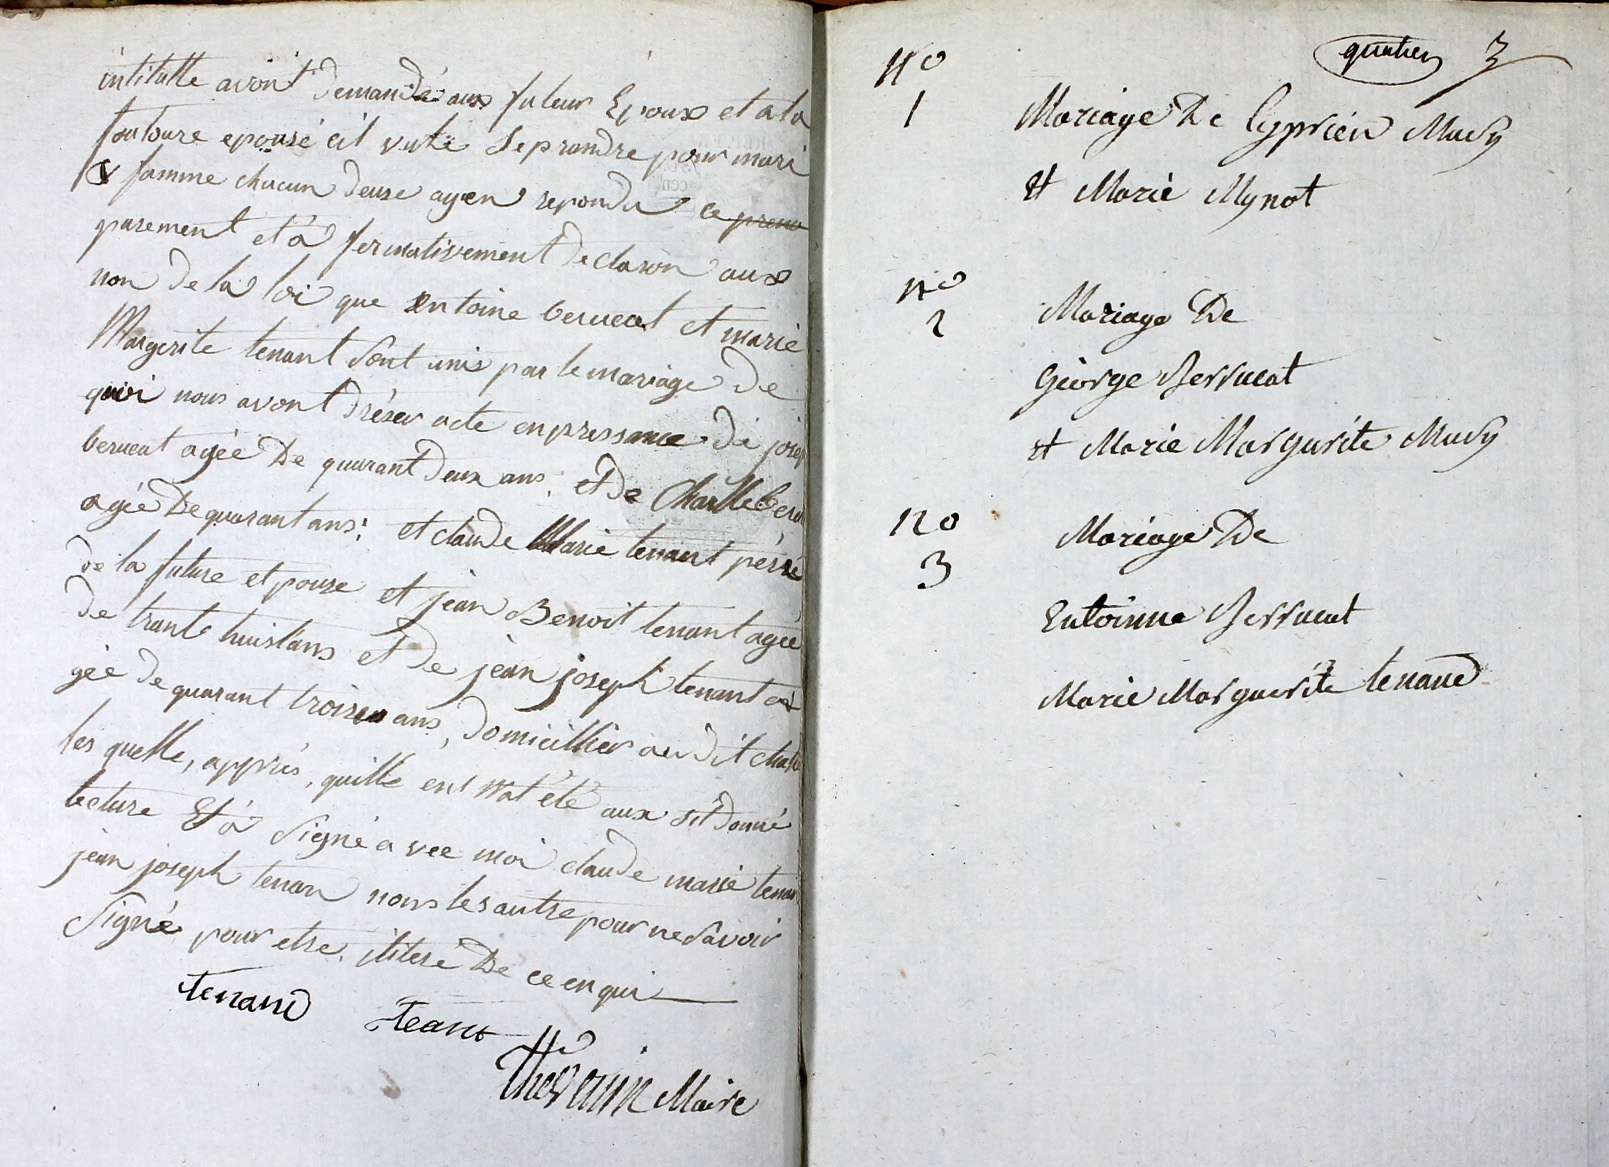 intitulle avont demandé aux futeur Epoux et a la
foutoure epousé cil veulé se prandre pour mari
& famme chacun deuse ayen repondu ce preno
parement et a fermativement declaron aux
non de la loi que Entoine berueat et marié
Margerite tenant sont unis par le mariage de
quoi nous avont dréser acte en pressance de josep
berucat agée de quarant deux ans, et de Charlle beru
agée de quarant ans; et claude Marie tenant pérre
de la future et pouse et jean Benoit tenant agée
de trante huist ans et de jean joseph tenant a
gée de quarant trois ans, domicillier audit
les quelle, apprés, quille ent été aux sit donné
lecture Et a Signé avee moi claude marie tenan
jean joseph tenan nons les autre pour ne savoir
Signé pour etre, de ce enqui
tenand teant
Thevenin Maire
quatier 3
No
1
Mariage De Cyprien Mudy
et Marie Mynot
No
2
Mariage De
George Berrucat
et Marie Margurite Mudy
no
3
Mariage De
Entoinne Berrucat
Marie Marguerite tenand